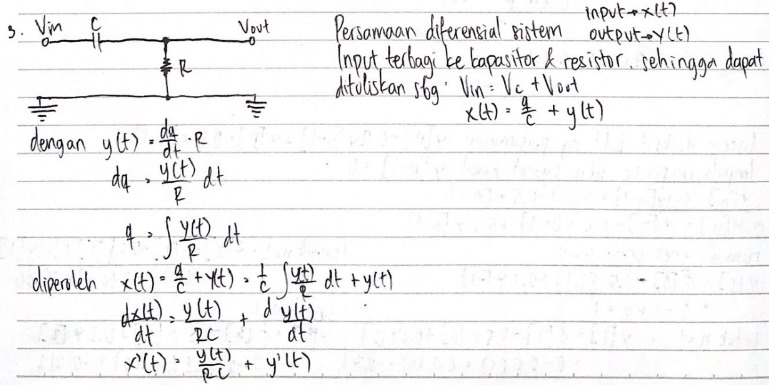 3. Vin C Vout
R
Persamaan diferensial sistem input→x(t)
output→y(t)
Input terbagi ke kapasitor & resistor, sehingga dapat
dituliskan sbg: Vin = Vc + Vout
x(t) = q/c + y(t)
dengan y(t) = dq/dt · R
dq = y(t)/R dt
q = ∫ y(t)/R dt
diperoleh x(t) = q/c + y(t) = 1/c ∫ y(t)/R dt + y(t)
dx(t)/dt = y(t)/RC + d y(t)/dt
x'(t) = y(t)/RC + y'(t)